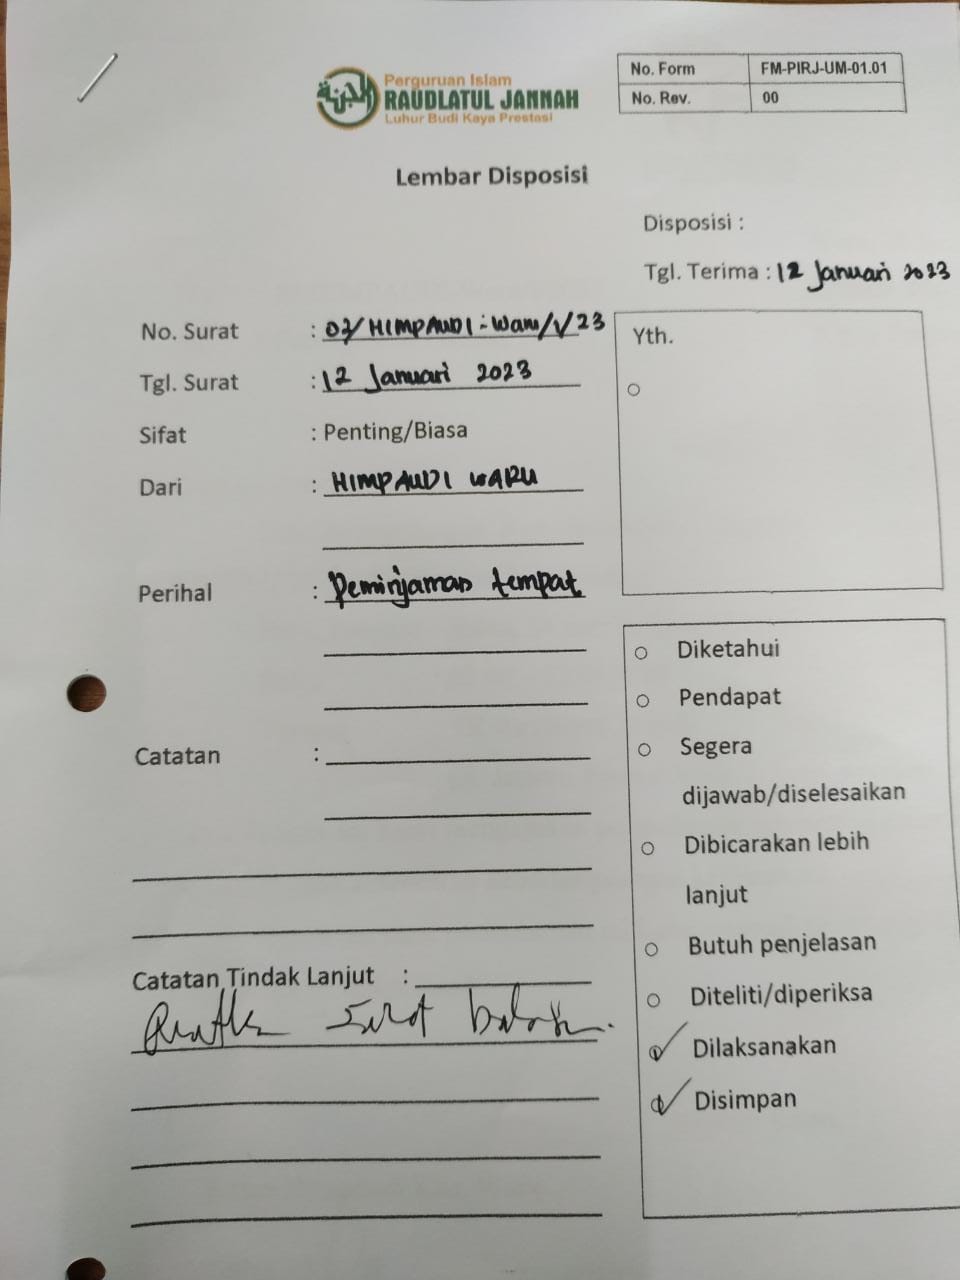 الجنة
Perguruan Islam
RAUDLATUL JANNAH
Luhur Budi Kaya Prestasi
No. Form FM-PIRJ-UM-01.01
No. Rev. 00
Lembar Disposisi
Disposisi :
Tgl. Terima : 12 Januari 2023
No. Surat : 07/HIMPAUDI-Waru/I/23
Tgl. Surat : 12 Januari 2023
Sifat : Penting/Biasa
Dari : HIMPAUDI WARU
Perihal : Peminjaman tempat
Catatan :
Catatan Tindak Lanjut :
Buatkan Surat balasan.
Yth.
Diketahui
Pendapat
Segera
dijawab/diselesaikan
Dibicarakan lebih
lanjut
Butuh penjelasan
Diteliti/diperiksa
Dilaksanakan
Disimpan